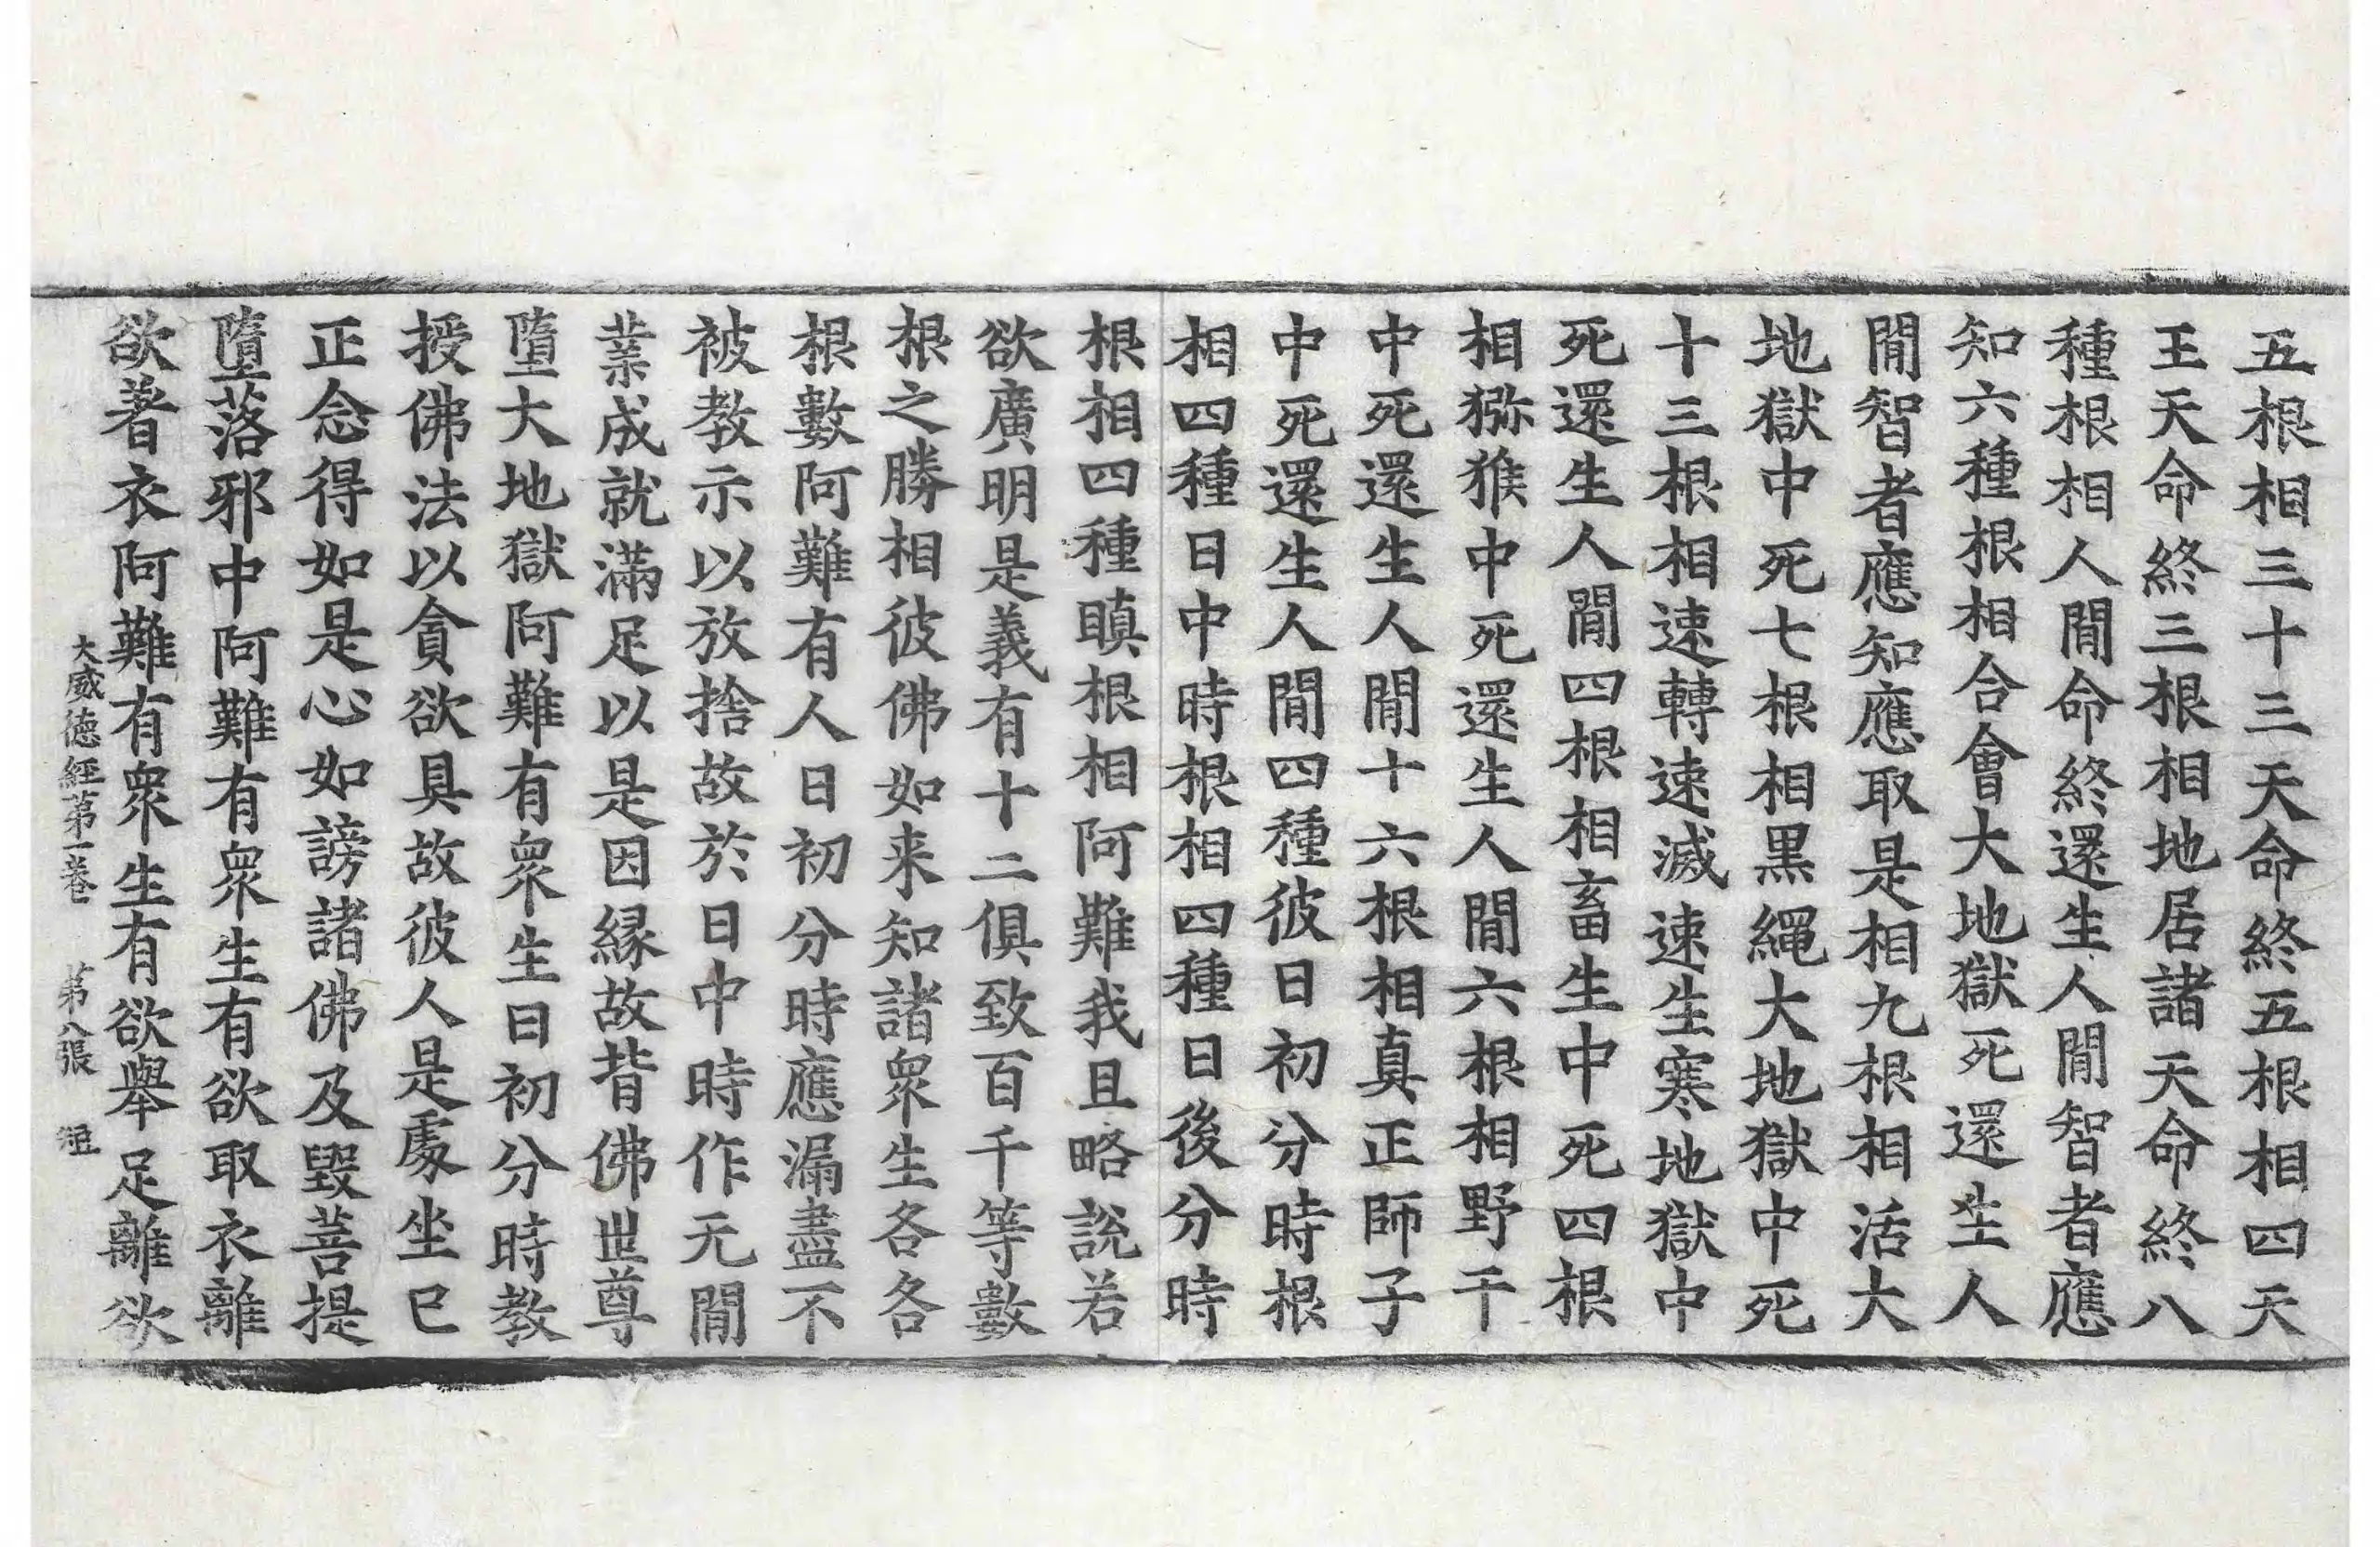 五根相三十三天命終五根相四天
王天命終三根相地居諸天命終八
種根相人閒命終還生人閒智者應
知六種根相合會大地獄死還生人
閒智者應知應取是相九根相活大
地獄中死七根相黒繩大地獄中死
十三根相速轉速滅速生寒地獄中
死還生人閒四根相畜生中死四根
相猕猴中死還生人閒六根相野干
中死還生人閒十六根相真正師子
中死還生人閒四種彼日初分時根
相四種日中時根相四種日後分時
根相四種瞋根相阿難我且略說若
欲廣明是義有十二俱致百千等數
根之勝相彼佛如来知諸衆生各各
根數阿難有人日初分時應漏盡不
被教示以放捨故於日中時作无閒
業成就滿足以是因縁故背佛世尊
墮大地獄阿難有衆生日初分時教
授佛法以貪欲具故彼人是處坐已
正念得如是心如謗諸佛及毀菩提
墮落邪中阿難有衆生有欲取衣離
欲著衣阿難有衆生有欲舉足離欲
大威德經第一卷 第八張